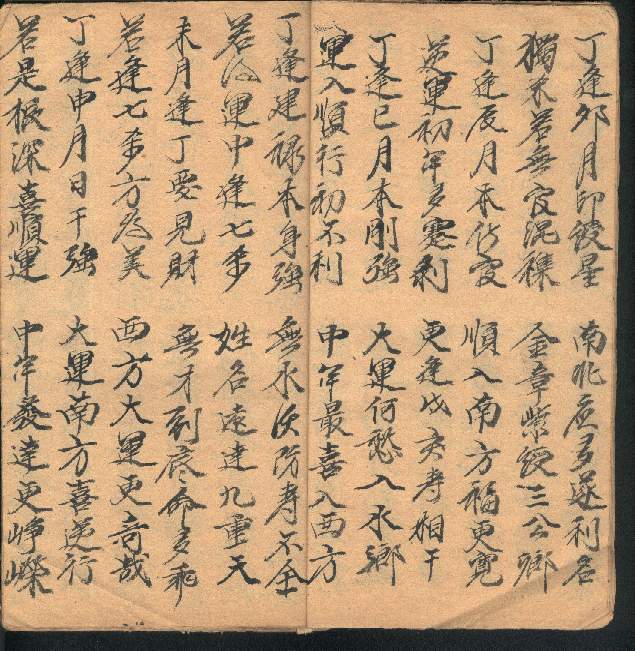 丁逢卯月印綬星　南北庶多逐利名
獨米若無官混襍　金章紫綬三公鄉
丁逢辰月本伤官　順入南方福更寬
逆運初年多蹇剥　更逢戊亥寿相干
丁逢巳月本刚強　大運何愁入水鄉
運入順行初不利　中年最喜入西方
丁逢建禄本身強　無水決防寿不全
若　運中逢七杀　姓名遠達九重天
未月逢丁要見財　無才到底命多乖
若逢七杀方為美　西方大運更奇哉
丁逢申月日干強　大運南方喜逆行
若是根深喜順運　中年發達更崢嶸